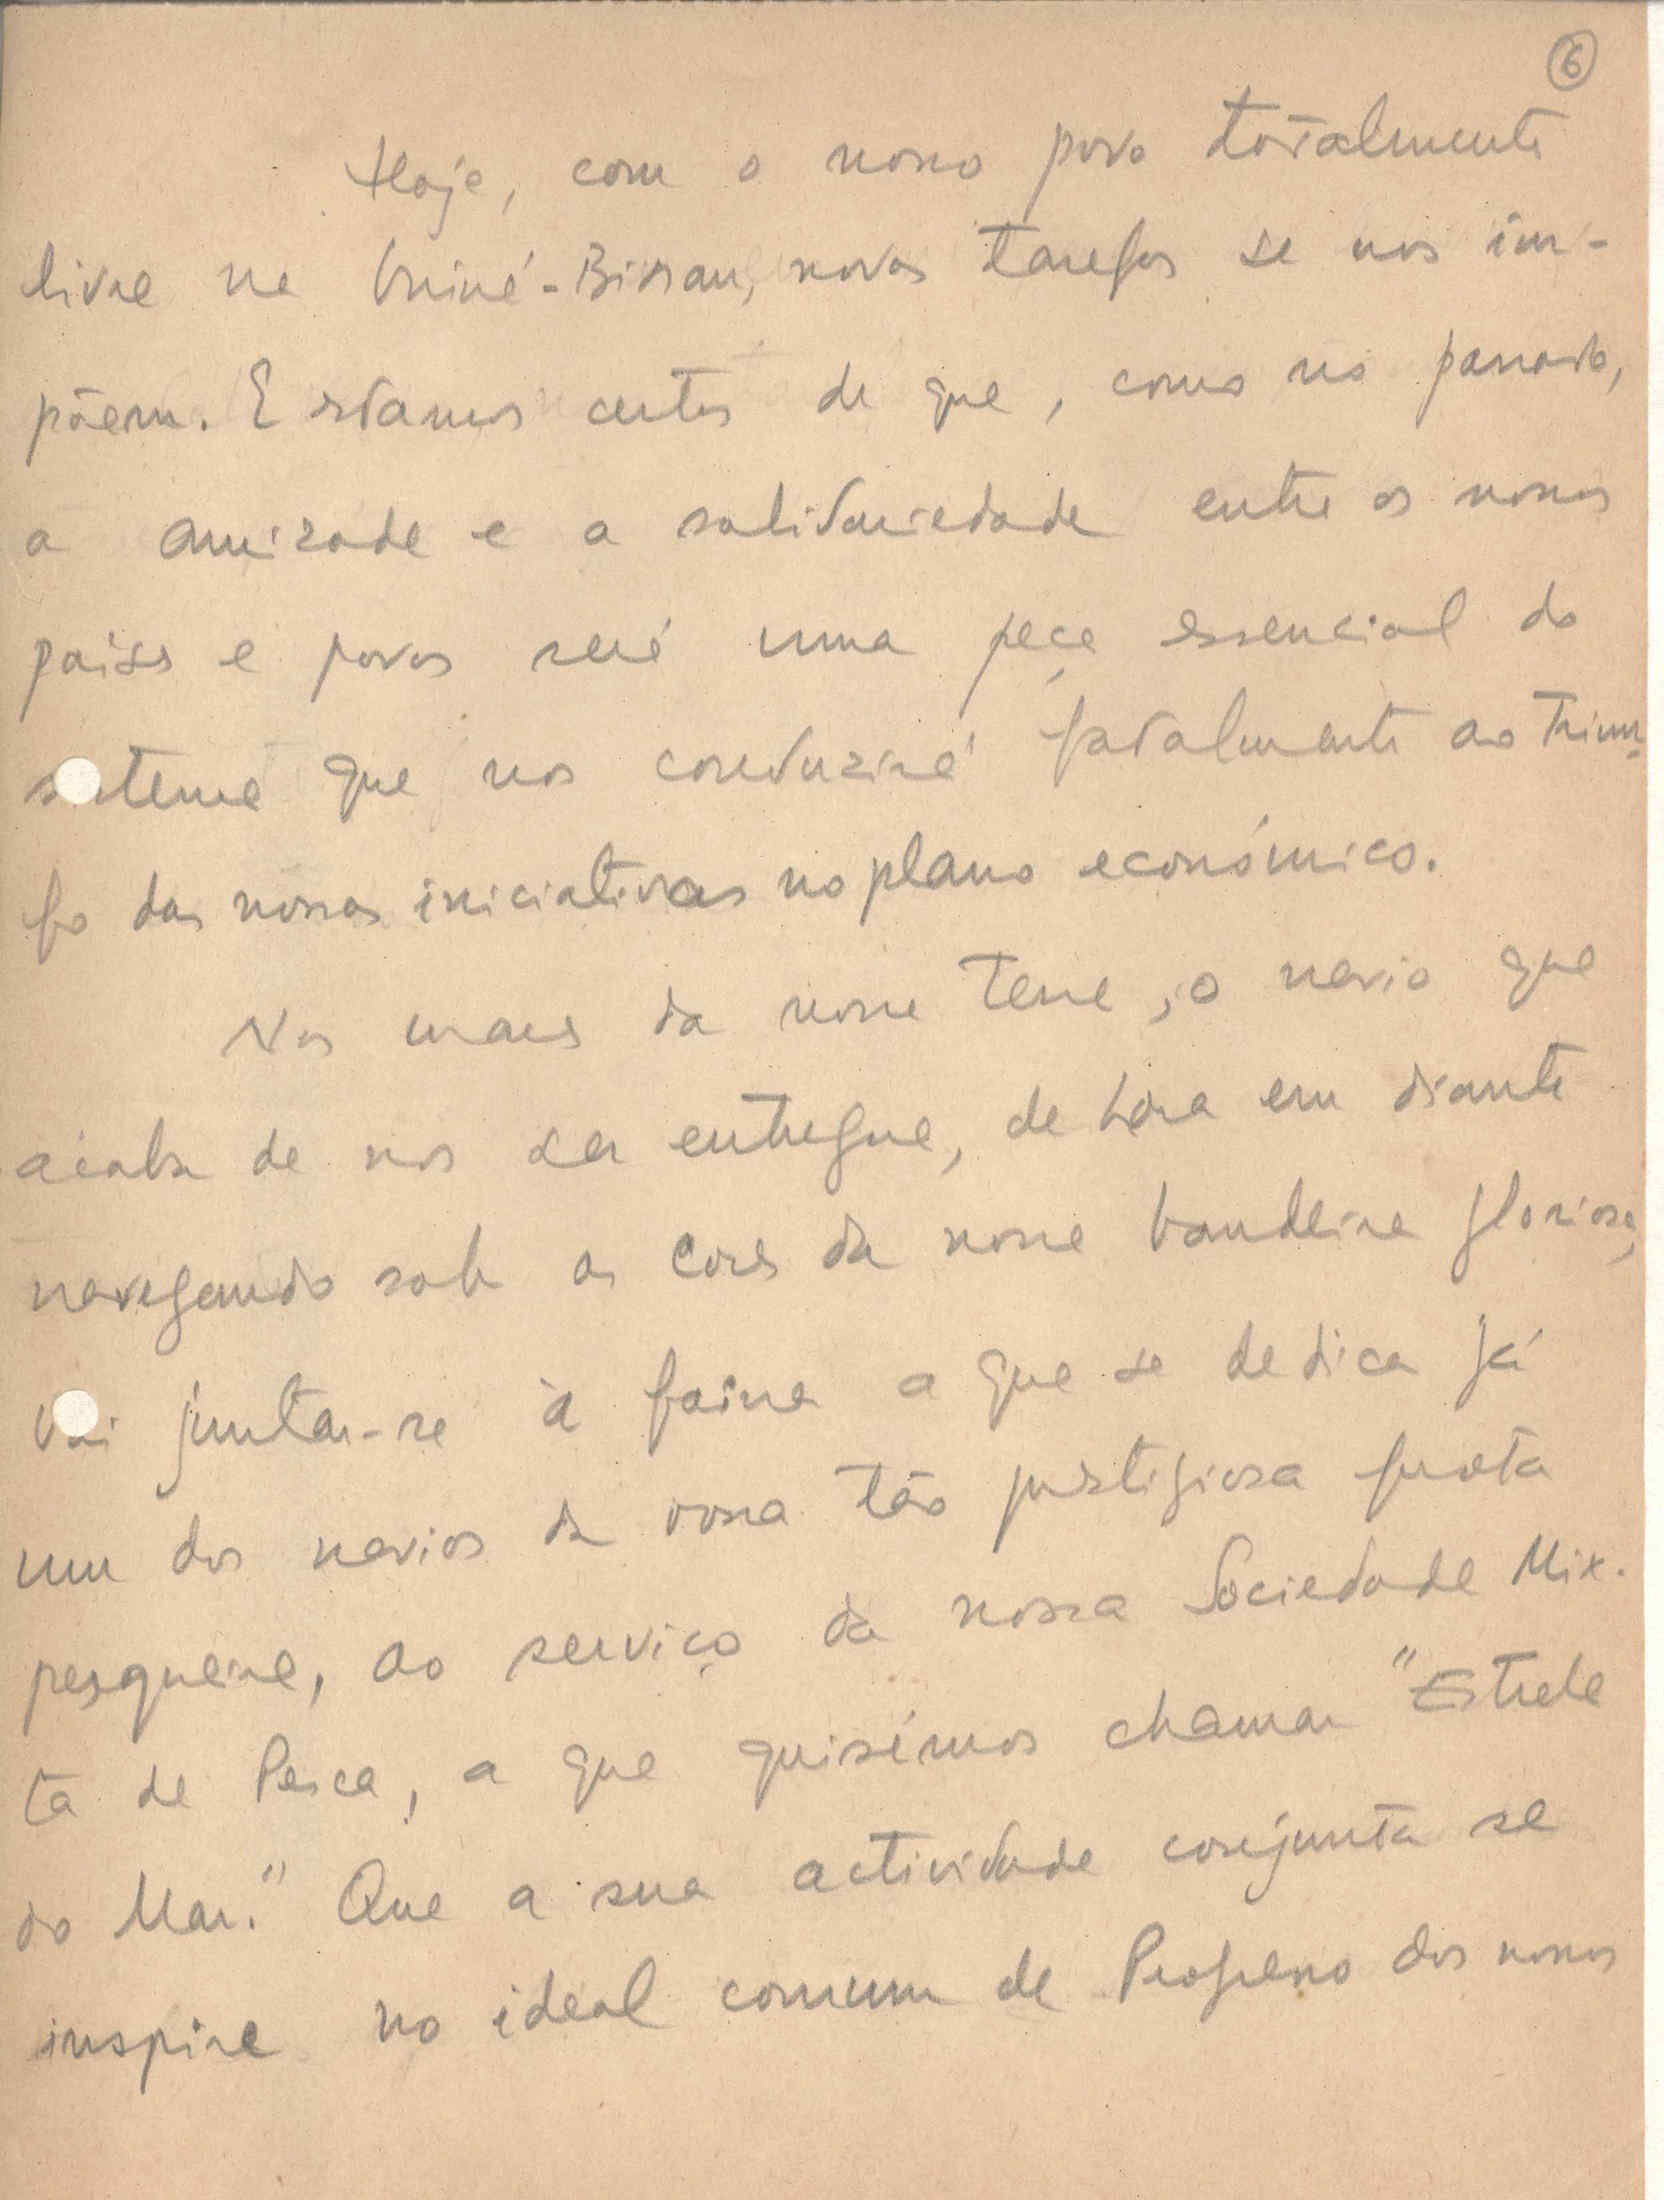 6
Hoje, com o nosso povo totalmente
livre na Guiné-Bissau, novas tarefas se nos im-
põem. Estamos certos de que, como no passado,
a amizade e a solidariedade entre os nossos
países e povos será uma peça essencial do
sistema que nos conduzirá fatalmente ao triun-
fo das nossas iniciativas no plano económico.
Nos mares da nossa terra, o navio que
acaba de nos ser entregue, de hora em diante
navegando sob as cores da nossa bandeira gloriosa,
vai juntar-se à faina a que se dedica já
um dos navios da vossa tão prestigiosa frota
pesqueira, ao serviço da nossa Sociedade Mix-
ta de Pesca, a que quisémos chamar "Estrela
do Mar." Que a sua actividade conjunta se
inspire no ideal comum de Progresso dos nossos